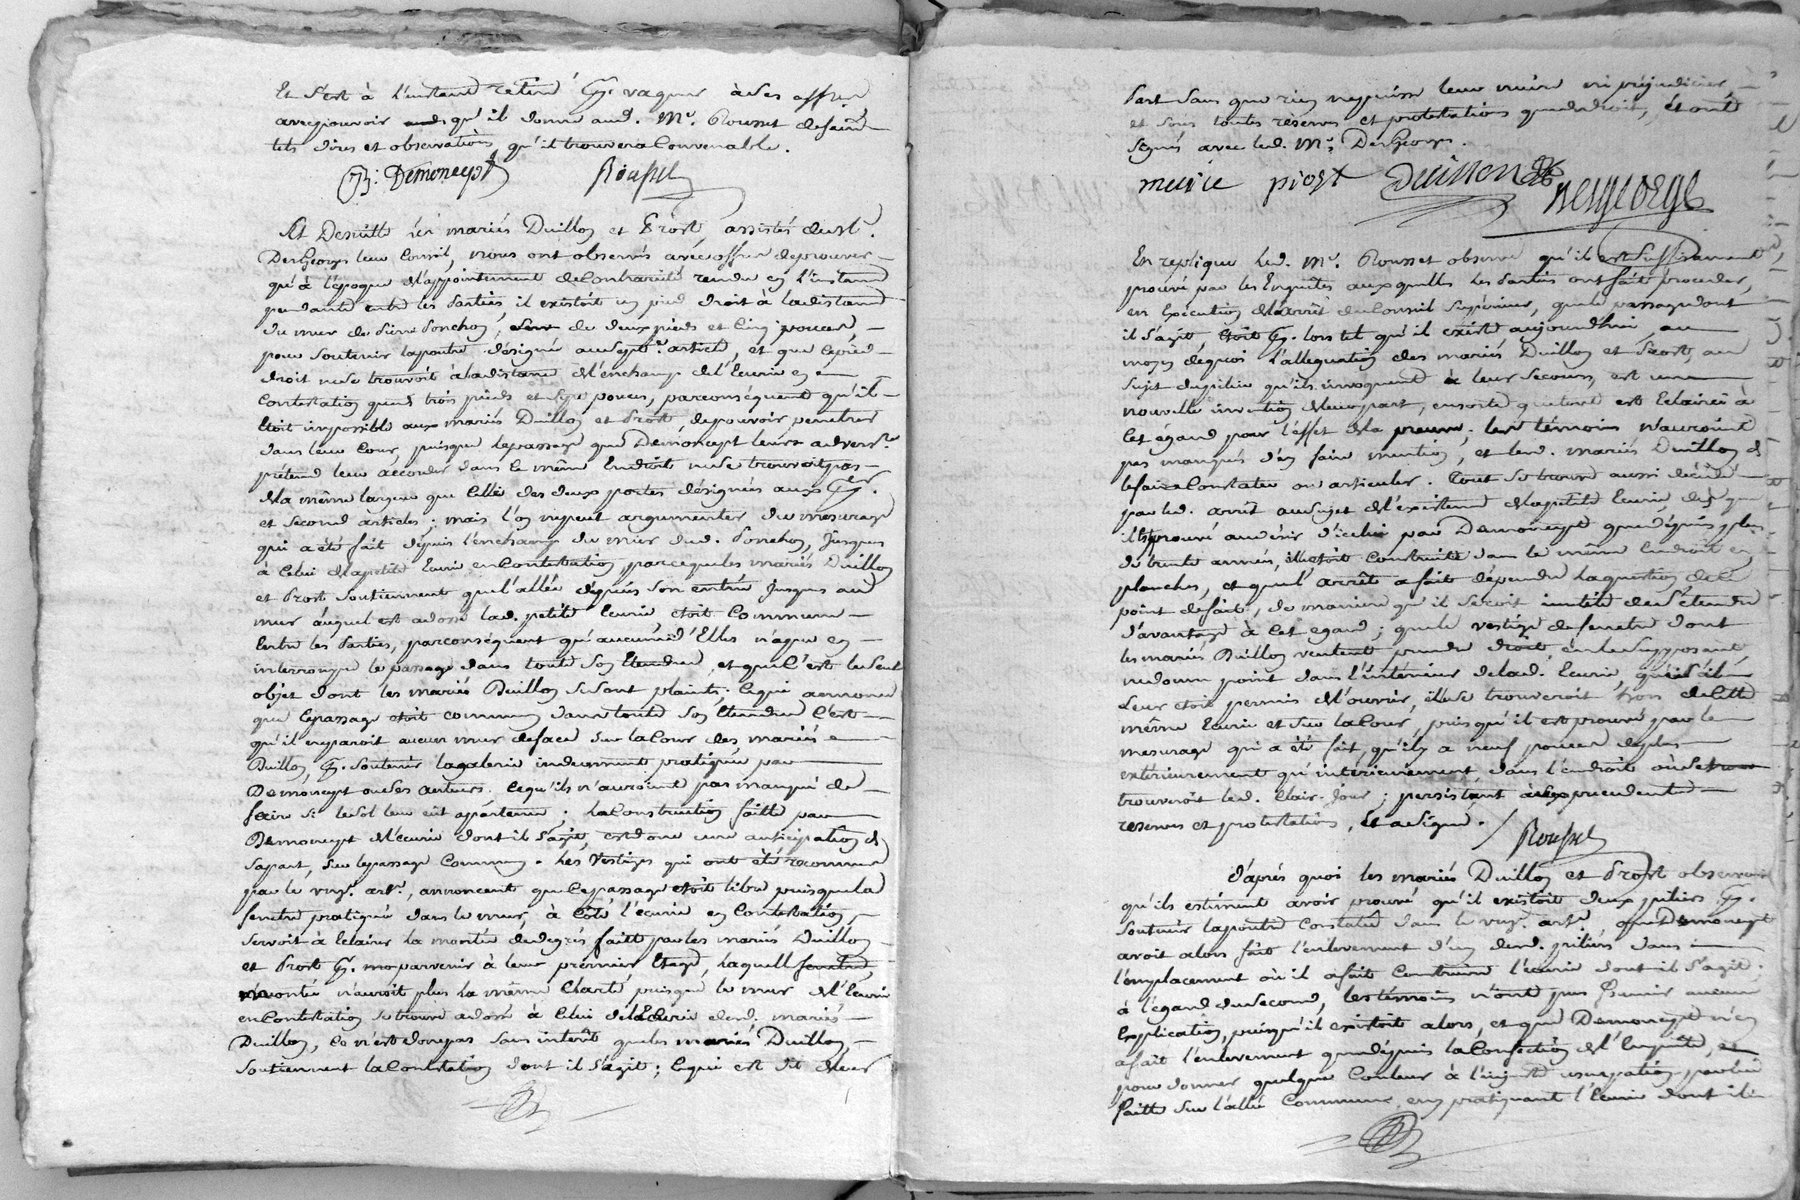 Et s'est à l'instant retiré pr. vaquer à ses affres
avec pouvoir qu'il donne aud. Me. Rousset de faire
tels dires et observations qu'il trouvera Convenable.
Demoncept Rousset
Et De suitte les mariés Duillon et Prost, assistés dud. Me.
DesGeorges leur Conseil, nous ont observés avec offre de prouver
qu'à l'epoque de l'appointement de Contrarieté rendu en l'instance
pendante entre les Parties, il existoit un pied droit à la distance
du mur de Ponchon, de deux pieds et Cinq pouces,
pour soutenir la poutre désignée au sept.e article, et que Ce pied
droit ne se trouvoit à la distance de l'enchamp de l'Ecurie en
Contestation que de trois pieds et sept pouces, par conséquent qu'il
étoit impossible aux mariés Duillon et Prost, de pouvoir penetrer
dans leur Cour, puisque le passage que Demoncept leurs advers.re
prétend leur accorder dans le même Endroit ne se trouvoit pas
de la même largeur que Celle des deux portes désignées aux per.
et second articles; mais l'on ne peut argumenter du mesurage
qui a été fait depuis l'enchamp du mur dud. Ponchon, jusques
à Celui de la petite Ecurie en Contestation, parceque les mariés Duillon
et Prost soutiennent que l'allée depuis son entrée jusques au
mur auquel est adossé lad. petite Ecurie, etoit Commune
Entre les Parties, par conséquent qu'aucune d'Elles n'a pu en
interrompre le passage dans toute son Etendue, et que C'est le seul
objet dont les mariés Duillon se sont plaints; Ce qui annonce
que le passage etoit commun dans toute son Etendue C'est
qu'il ne paroit aucun mur de face sur la Cour des mariés
Duillon, pr. soutenir la galerie induement pratiquée par
Demoncept ou ses auteurs. Ce qu'ils n'auroient pas manqué de
faire si le sol leur eût apartenu; la Construction faitte par
Demoncept de l'écurie dont il s'agit, est donc une anticipation de
sa part, sur le passage Commun. Les Vestiges qui ont été reconnus
par le art.e, annoncent que Ce passage etoit libre puisque la
fenetre pratiquée dans le mur, à Côté l'écurie en Contestation,
servoit à Eclairer la montée de degrés faitte par les mariés Duillon
et Prost pr. parvenir à leur premier Etage, laquelle fenetre
montée n'auroit plus la même Clarté, puisque le mur de l'Ecurie
en Contestation se trouve adossé à Celui de l'Ecurie desd. mariés
Duillon, Ce n'est donc pas sans intérêt que les mariés Duillon,
soutiennent la Contestation dont il s'agit; Ce qui est dit de leur
part sans que rien ne puisse leur nuire ni préjudicier,
et sous toutes réserves et protestations que de droit, et ont
signés avec led. Me. DesGeorges.
marie prost Duillon Desgeorge
En replique led. Me. Rousset observe qu'il est suffisament
prouvé par les Enquêtes auxquelles les Parties ont fait proceder,
en Exécution de l'arrêt du Conseil Supérieur, que le passage dont
il s'agit, étoit pr. lors tel qu'il existe aujourd'hui, au
moyen de quoi l'allegation des mariés Duillon et Prost, au
sujet du pilier qu'ils invoquent à leur secours, est une
nouvelle invention de leur part, ensorte que tout est Eclairci à
Cet égard pour l'effet de la preuve; les témoins n'auroient
pas manqués d'en faire mention, et lesd. mariés Duillon de
le faire Constater ou articuler. Tout se trouve aussi décidé
par led. arrêt au sujet de l'existence de la petite Ecurie, dès que
il est prouvé au désir d'icelui par Demoncept que depuis plus
de trente années, elle etoit Construite dans le même Endroit en
planches, et que l'arrêt a fait dépendre la question de Ce
point de fait, de maniere qu'il seroit inutile de s'étendre
d'avantage à Cet egard; que le vestige de fenetre dont
les mariés Duillon veulent prendre droit, en le supposant,
ne donne point dans l'intérieur de lad. Ecurie, qu'et s'il
leur etoit permis de l'ouvrir, elle se trouveroit hors de Cette
même Ecurie et sur la Cour, puisqu'il est prouvé par le
mesurage qui a été fait, qu'il y a neuf pouces de plus
extérieurement qu'intérieurement, dans l'endroit où se
trouveroit led. Clair-Jour; persistant à Ses precedentes
reserves et protestations, Et a signé.
Rousset
D'après quoi les mariés Duillon et Prost observent
qu'ils estiment avoir prouvé qu'il existoit deux piliers pr.
soutenir la poutre Constatée dans le art.e que Demoncept
avoit alors fait l'enlevement d'un desd. piliers dans
l'emplacement où il a fait Construire l'écurie dont il s'agit.
à l'égard du second, les témoins n'ont pu fournir aucune
Explication, puisqu'il existoit alors, et que Demoncept n'en
a fait l'enlevement que depuis la Confection de l'Enquête, et
pour donner quelque Couleur à l'injuste usurpation par lui
faitte sur l'allée Commune en pratiquant l'Ecurie dont il